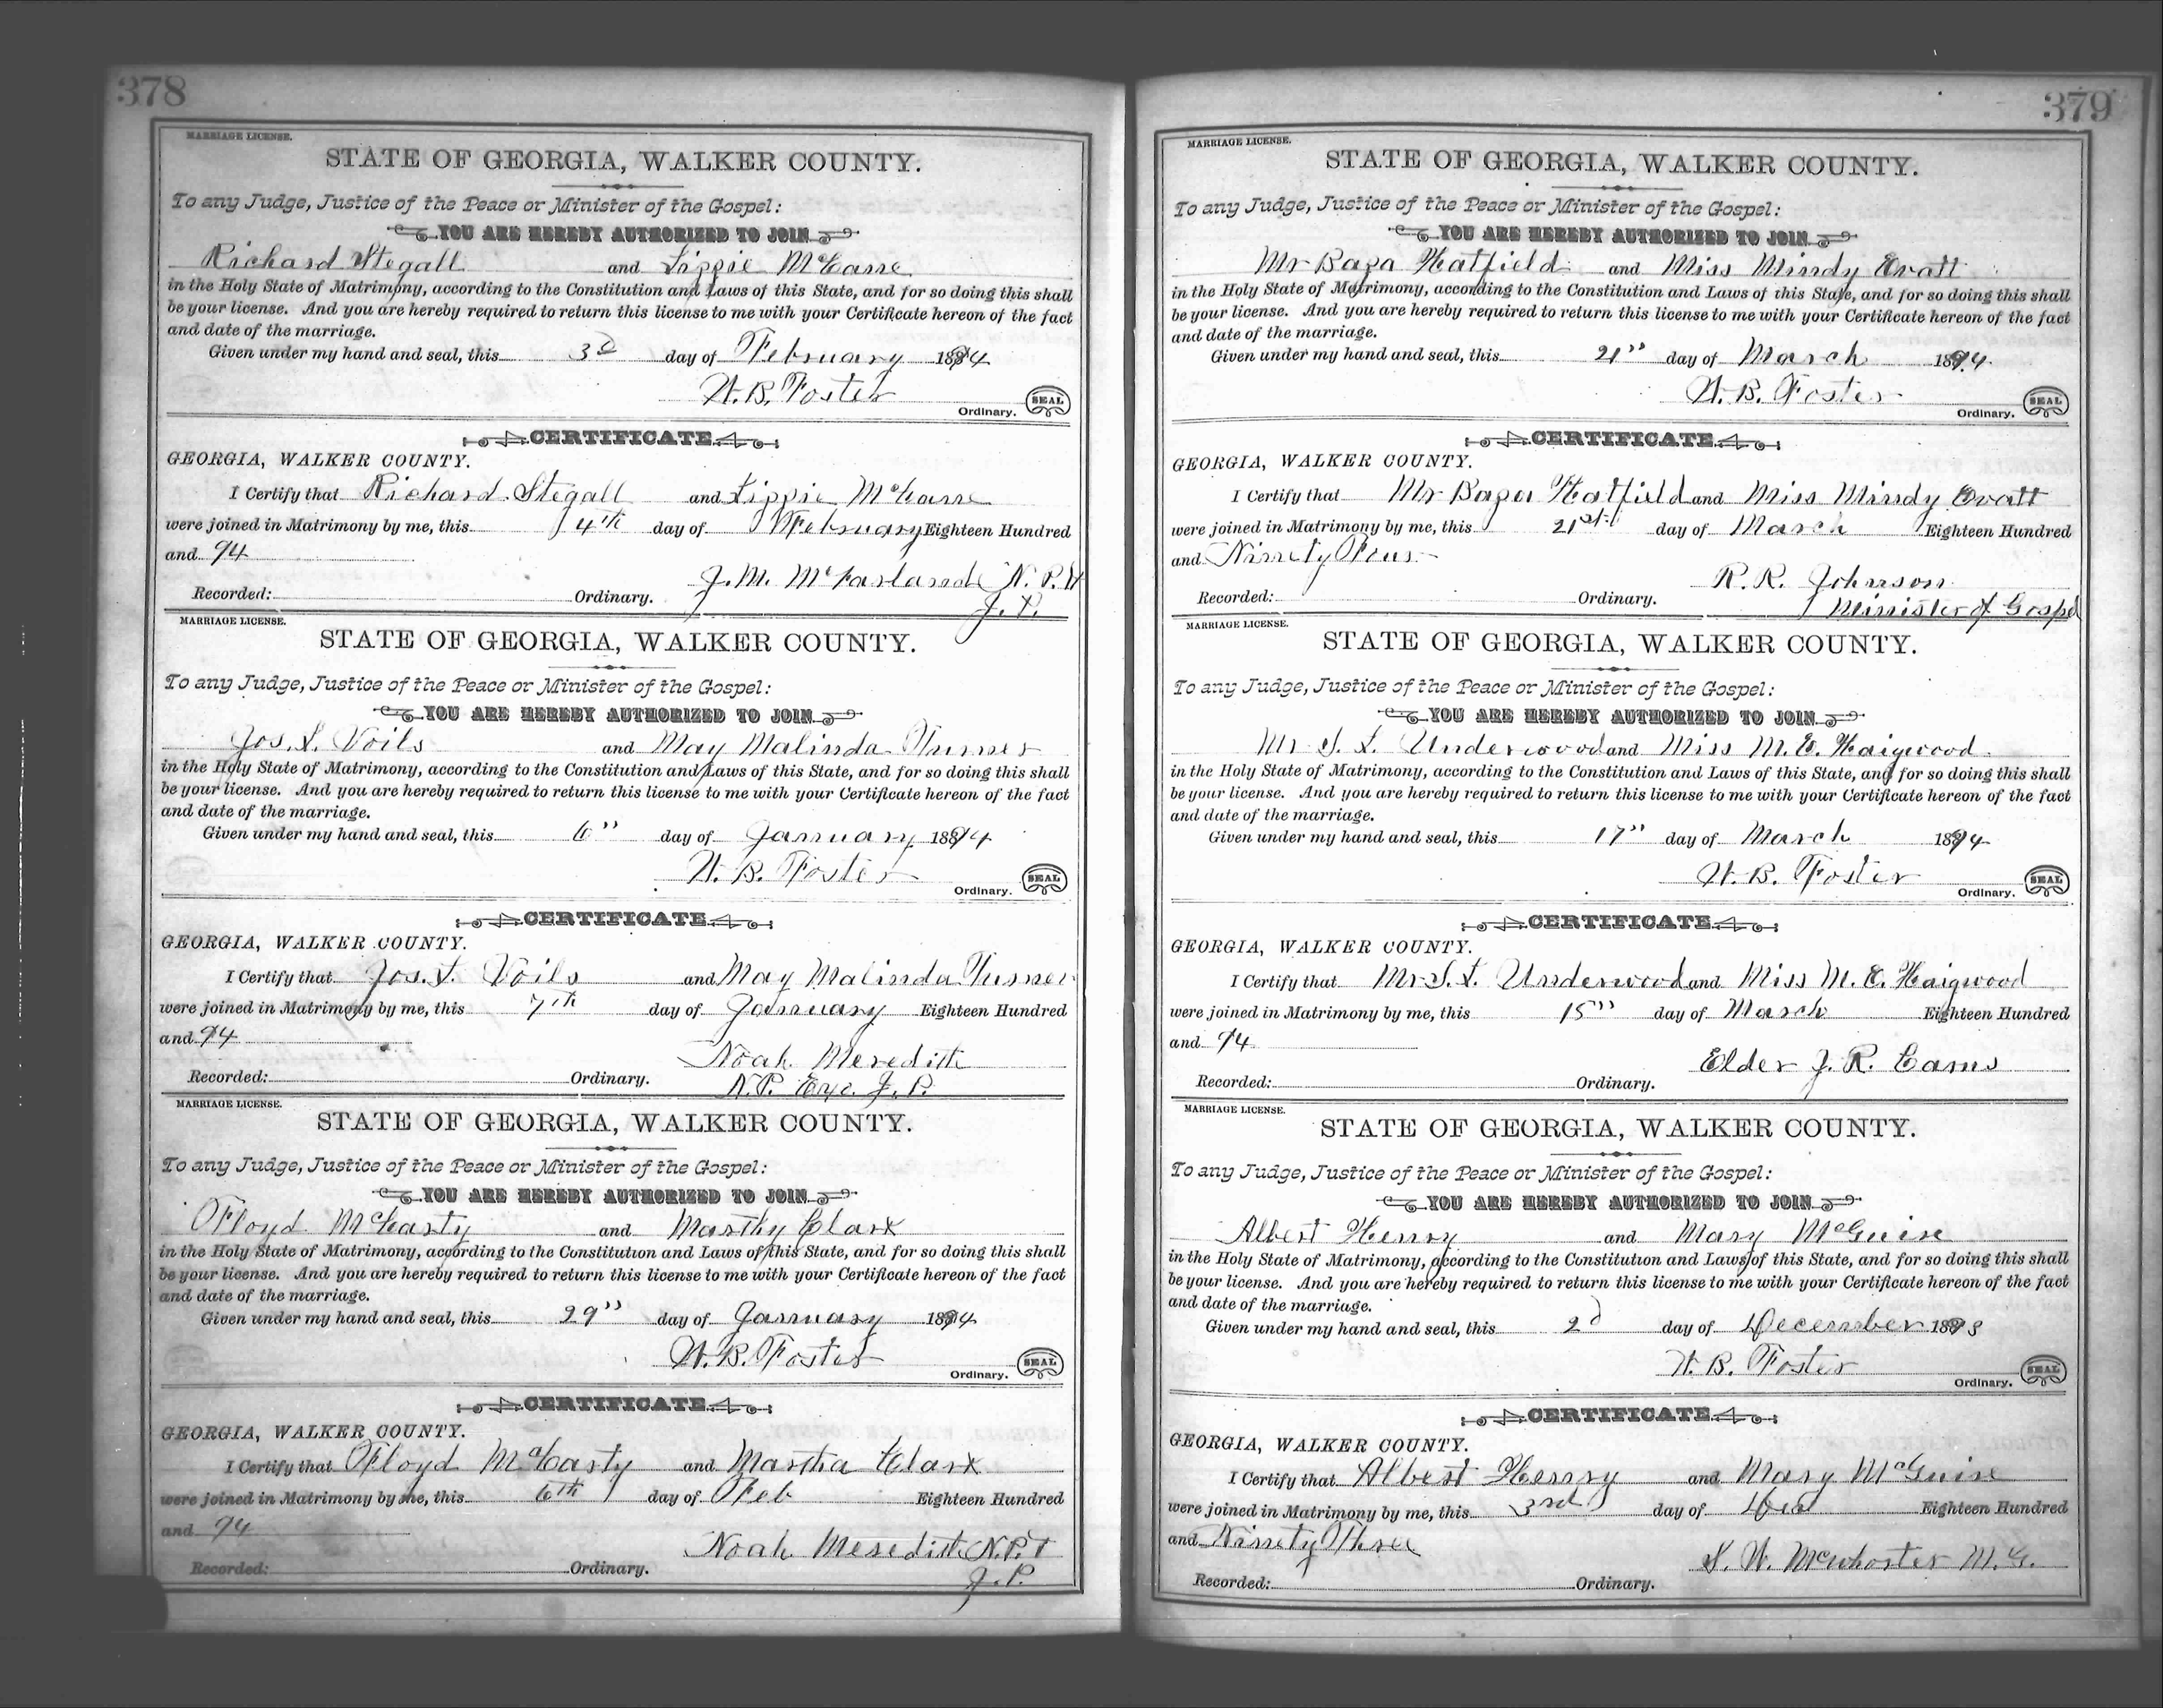 378
MARRIAGE LICENSE.
STATE OF GEORGIA, WALKER COUNTY.
To any Judge, Justice of the Peace or Minister of the Gospel:
YOU ARE HEREBY AUTHORIZED TO JOIN
Richard Stegall and Lizzie
in the Holy State of Matrimony, according to the Constitution and Laws of this State, and for so doing this shall
be your license. And you are hereby required to return this license to me with your Certificate hereon of the fact
and date of the marriage.
Given under my hand and seal, this 3d day of February 1894
W. B. Foster
Ordinary. SEAL
CERTIFICATE
GEORGIA, WALKER COUNTY.
I Certify that Richard Stegall and Lizzie
were joined in Matrimony by me, this 4th day of February Eighteen Hundred
and 94
J. M. McFarland N. P. &
Recorded: Ordinary. J. P.
MARRIAGE LICENSE.
STATE OF GEORGIA, WALKER COUNTY.
To any Judge, Justice of the Peace or Minister of the Gospel:
YOU ARE HEREBY AUTHORIZED TO JOIN
Jos. L. Voils and May Malinda Turner
in the Holy State of Matrimony, according to the Constitution and Laws of this State, and for so doing this shall
be your license. And you are hereby required to return this license to me with your Certificate hereon of the fact
and date of the marriage.
Given under my hand and seal, this 6" day of January 1894
W. B. Foster
Ordinary. SEAL
CERTIFICATE
GEORGIA, WALKER COUNTY.
I Certify that Jos. L. Voils and May Malinda Turner
were joined in Matrimony by me, this 7th day of January Eighteen Hundred
and 94
Noah Meredith
Recorded: Ordinary. N. P. Exo. J. P.
MARRIAGE LICENSE.
STATE OF GEORGIA, WALKER COUNTY.
To any Judge, Justice of the Peace or Minister of the Gospel:
YOU ARE HEREBY AUTHORIZED TO JOIN
Floyd McCarty and Marthy Clark
in the Holy State of Matrimony, according to the Constitution and Laws of this State, and for so doing this shall
be your license. And you are hereby required to return this license to me with your Certificate hereon of the fact
and date of the marriage.
Given under my hand and seal, this 29" day of January 1894
W. B. Foster
Ordinary. SEAL
CERTIFICATE
GEORGIA, WALKER COUNTY.
I Certify that Floyd McCarty and Martha Clark
were joined in Matrimony by me, this 6th day of Feb Eighteen Hundred
and 94
Noah Meredith N. P. &
Recorded: Ordinary. J. P.
379
MARRIAGE LICENSE.
STATE OF GEORGIA, WALKER COUNTY.
To any Judge, Justice of the Peace or Minister of the Gospel:
YOU ARE HEREBY AUTHORIZED TO JOIN
Mr Baza Hatfield and Miss Mindy Evatt
in the Holy State of Matrimony, according to the Constitution and Laws of this State, and for so doing this shall
be your license. And you are hereby required to return this license to me with your Certificate hereon of the fact
and date of the marriage.
Given under my hand and seal, this 21" day of March 1894
W. B. Foster
Ordinary. SEAL
CERTIFICATE
GEORGIA, WALKER COUNTY.
I Certify that Mr Baza Hatfield and Miss Mindy Evatt
were joined in Matrimony by me, this 21st day of March Eighteen Hundred
and Ninety Four
R. R. Johnson
Recorded: Ordinary. Minister of Gospel
MARRIAGE LICENSE.
STATE OF GEORGIA, WALKER COUNTY.
To any Judge, Justice of the Peace or Minister of the Gospel:
YOU ARE HEREBY AUTHORIZED TO JOIN
Mr S. L. Underwood and Miss M. E. Haigwood
in the Holy State of Matrimony, according to the Constitution and Laws of this State, and for so doing this shall
be your license. And you are hereby required to return this license to me with your Certificate hereon of the fact
and date of the marriage.
Given under my hand and seal, this 17" day of March 1894
W. B. Foster
Ordinary. SEAL
CERTIFICATE
GEORGIA, WALKER COUNTY.
I Certify that Mr S. L. Underwood and Miss M. E. Haigwood
were joined in Matrimony by me, this 15" day of March Eighteen Hundred
and 94
Elder J. R.
Recorded: Ordinary.
MARRIAGE LICENSE.
STATE OF GEORGIA, WALKER COUNTY.
To any Judge, Justice of the Peace or Minister of the Gospel:
YOU ARE HEREBY AUTHORIZED TO JOIN
Albert Henry and Mary McGuire
in the Holy State of Matrimony, according to the Constitution and Laws of this State, and for so doing this shall
be your license. And you are hereby required to return this license to me with your Certificate hereon of the fact
and date of the marriage.
Given under my hand and seal, this 2d day of December 1893
W. B. Foster
Ordinary. SEAL
CERTIFICATE
GEORGIA, WALKER COUNTY.
I Certify that Albert Henry and Mary McGuire
were joined in Matrimony by me, this 3rd day of Dec Eighteen Hundred
and Ninety Three
S. W. McWhorter M. G.
Recorded: Ordinary.